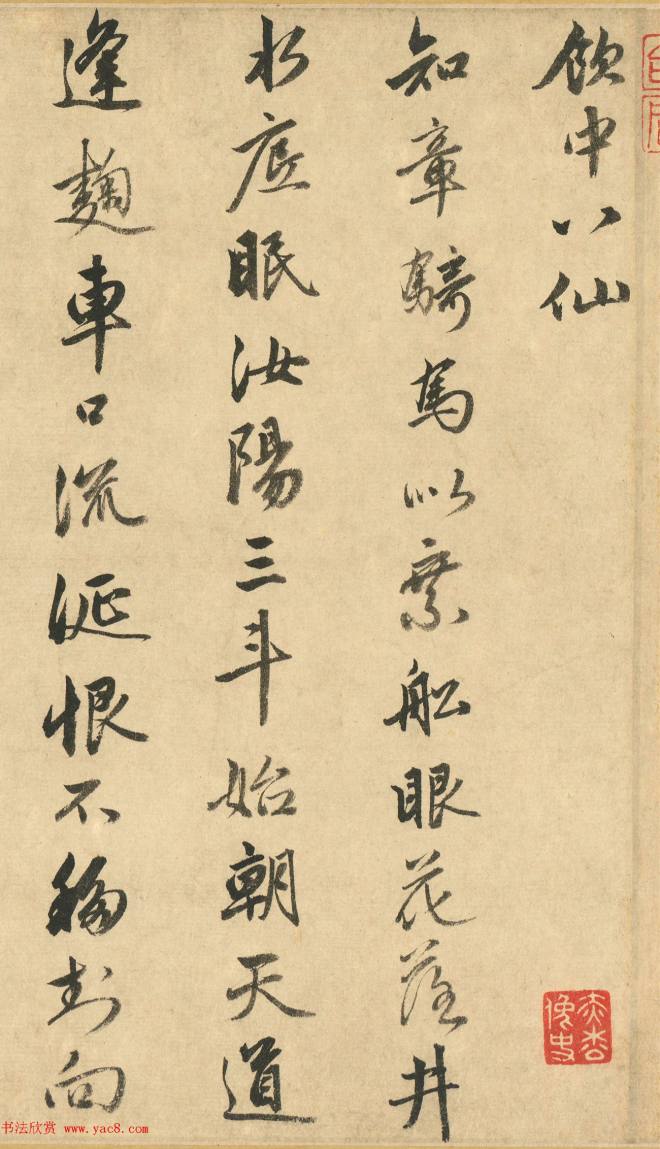 飲中八仙
知章騎馬似乘船眼花落井
水底眠汝陽三斗始朝天道
逢麹車口流涎恨不移封向
书法欣赏 www.yac8.com